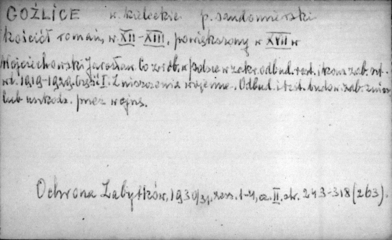 GOŹLICE w. kieleckie p. sandomierski
kościół romań, w XII-XIII, powiększony w XVII w
Wojciechowski Jarosław. Co zrób. w Polsce w zakr. odbud. rest. i konz. zab. szt.
wl. 1919-1929. Część I. Zniszczenia wojenne. Odbud. i rest. budow. zab. zniszcz
lub uszkodz. przez wojnę.
Ochrona Zabytków, 1930/31, zesz. 1-4, cz. II. str. 243-318 (263).